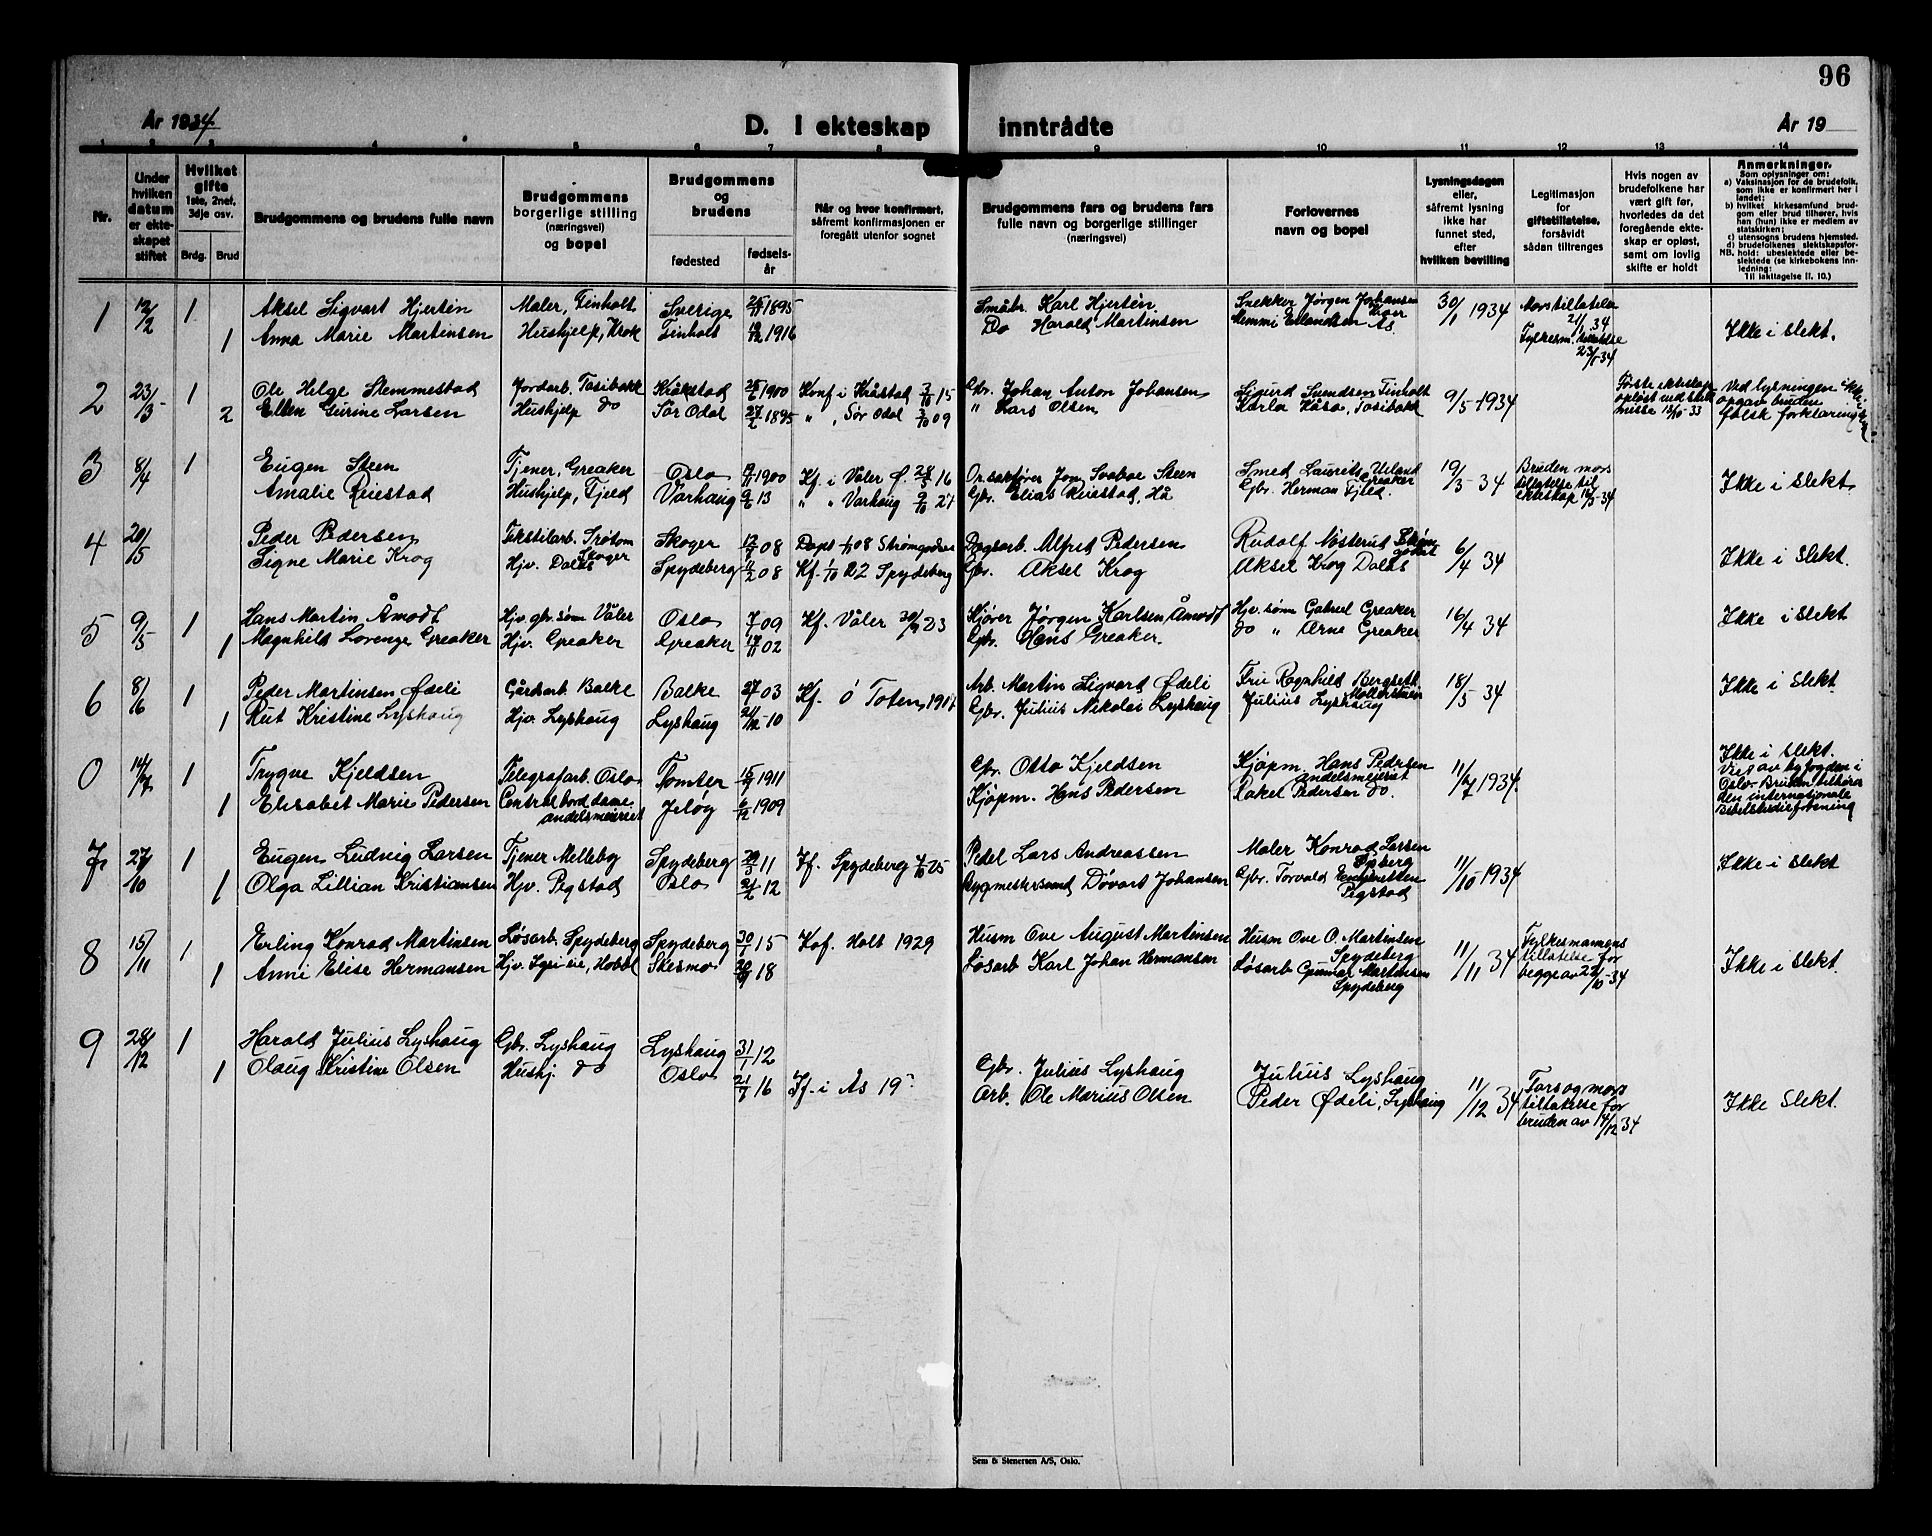 96
År 1934
D. I ekteskap inntrådte
År 19
1 2 3 4 5 6 7 8 9 10 11 12 13 14
Nr.
Under hvilken datum er ekteskapet stiftet
Hvilket gifte 1ste, 2net, 3dje osv.
Brdg. Brud
Brudgommens og brudens fulle navn
Brudgommens borgerlige stilling (næringsvei) og bopel
Brudgommens og brudens
fødested
fødselsår
Når og hvor konfirmert, såfremt konfirmasjonen er foregått utenfor sognet
Brudgommens fars og brudens fars fulle navn og borgerlige stillinger (næringsvei)
Forlovernes navn og bopel
Lysningsdagen eller, såfremt lysning ikke har funnet sted, efter hvilken bevilling
Legitimasjon for giftetillatelse, forsåvidt sådan tiltrenges
Hvis nogen av brudefolkene har vært gift før, hvorledes da det foregående ekteskap er opløst, samt om lovlig skifte er holdt
Anmerkninger.
Som oplysninger om:
a) Vaksinasjon for de brudefolk, som ikke er konfirmert her i landet:
b) hvilket kirkesamfund brudgom eller brud tilhører, hvis han (hun) ikke er medlem av statskirken:
c) utensogns brudens hjemsted.
d) brudefolkenes slektskapsforhold: ubeslektede eller beslektede (se kirkebokens innledning:
NB. Til iakttagelse II. 10.)
1 12/2 1 Aksel Sigvart Hjertén Maler, Finholt Sverige 1895 Småbr. Karl Hjertén. Snekker Jørgen Johansen 30/1 1934 Mors tillatelse 21/1 34
1 Anna Marie Martinsen Hushjelp, Krok Finholt 1916 Do Harald Martinsen Memmi Erlandsen Ås Fylkesm. tillatelse 23/1-34 Ikke i slekt.
2 23/3 1 Ole Helge Stemmestad Jordarb. Tosibekk Kråkstad 1900 Konf i Kråkstad 15 Gbr. Johan Anton Johansen Sigurd Svendsen Finholt 9/5-1934 Første ekteskap opløst ved skilsmisse 33 Ved lysningen
2 Ellen Gurine Larsen Hushjelp do Sør Odal 27/2 1895 " , Sør Odal 09 " Lars Olsen Karla Håsa, Tosibekk opgav bruden falsk forklaring
3 8/4 1 Eugen Steen Tjener, Greaker Oslo 1900 Kf. i Våler 16 Jon Svaboe Steen Smed Laurits Ueland Greaker 19/3-34 Bruden mors tillatelse til ekteskap 34
Amalie Reiestad Hushjelp, Fjeld Varhaug 13 " " Varhaug 27 Gbr. Elias Reiestad, Hå Gbr. Herman Fjeld. Ikke i slekt
4 20/5 Peder Pedersen Tekstilarb. Skoger Skoger 08 Døpt 08 Strømgodset Dagsarb. Alfred Pedersen Rudolf Nøsterud 6/4 34
Signe Marie Krog Hjv. Spydeberg 08 Kf. 1/10 22 Spydeberg Gbr. Aksel Krog Aksel Krog Ikke i slekt.
5 9/5 1 Hans Martin Åmodt Hjv. gbr. søn Våler Oslo 7/7 09 Kf. Våler 23 Kjører Jørgen Karlsen Åmodt Hjv. søn Gabriel Greaker 16/4 34 Ikke i slekt
1 Magnhild Lorenze Greaker Hjv. Greaker Greaker 17/11 02 Gbr. Hans Greaker. do " Arne Greaker
6 8/6 1 Peder Martinsen Ødeli Gårdsarb. Balke Balke 03 Kf. Ø Toten 1917 Arb. Martin Sigvart Ødeli Fru Ragnhild Bergseth 18/5 34 Ikke i slekt.
1 Rut Kristine Lyshaug Hjv. Lyshaug Lyshaug 10 Gbr. Julius Nikolai Lyshaug Julius Lyshaug
0 14/7 1 Trygve Kjeldsen Telegrafarb. Oslo Tomter 1911 Gbr. Otto Kjeldsen Kjøpm. Hans Pedersen andelsmeieriet 11/7 1934. Ikke i slekt. Viet av byfogden i Oslo. Bruden tilhører den internationale bibelstudieforening
1 Elisabet Marie Pedersen Centralborddame andelsmeieriet Jeløy 6/12 1909 Kjøpm. Hans Pedersen Rakel Pedersen do.
7 27/10 1 Eugen Ludvig Larsen Tjener Melleby Spydeberg 11 Kf. Spydeberg 25 Pedel Lars Andreassen Maler Konrad Larsen Spberg 11/10 1934 Ikke i slekt
1 Olga Lillian Kristiansen Hjv. Pegstad Oslo 12 Bygmestersmed Døvart Johansen Gbr. Torvald Pegstad
8 15/11 1 Erling Konrad Martinsen Løsarb. Spydeberg Spydeberg 30/1 15 Kof. Holt 1929 Husm Ove August Martinsen Husm Ove O. Martinsen Spydeberg 11/11 34 Fylkesmannens tillatelse for begge av 34
1 Anni Elise Hermansen Hjv. Hobøl Skesmo 18 Løsarb Karl Johan Hermansen Løsarb Gunnar Martinsen Spydeberg Ikke i slekt.
9 28/12 1 Harald Julius Lyshaug Gbr. Lyshaug Lyshaug 31/1 12 Gbr. Julius Lyshaug Julius Lyshaug 11/12 34 Fars og mors tillatelse for bruden av 14/12 34
1 Olaug Kristine Olsen Hushj. do Oslo 21/7 16 Kf. i Ås 19 Arb. Ole Marius Olsen Peder Ødeli, Lyshaug Ikke slekt.
Sem & Stenersen A/S, Oslo.